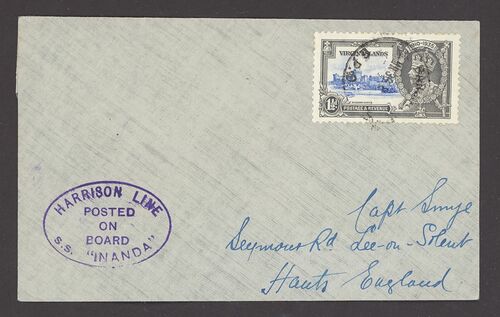 VIRGIN ISLANDS
1910-1935
1½d
POSTAGE & REVENUE
HARRISON LINE
POSTED
ON
BOARD
S.S. "INANDA"
Capt Smye
Seymour Rd Lee-on-Solent
Hants England